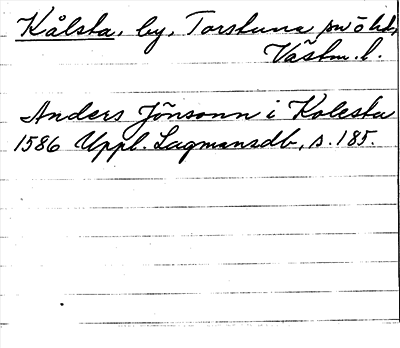 Kålsta, by, Torstuna sn o hd,
Västm. l.
Anders Jönsonn i Kolesta
1586 Uppl. Lagmansdb, s. 185.